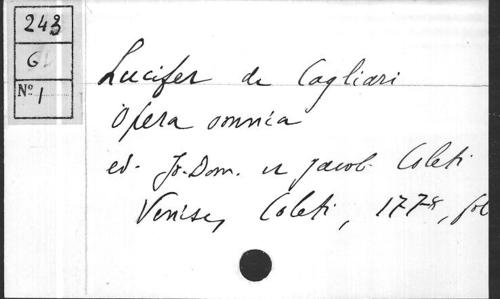 243
G
Nº 1
Lucifer de Cagliari
Opera omnia
ed. Jo. Dom. et Jacob. Coleti
Venise, Coleti, 1778, fol